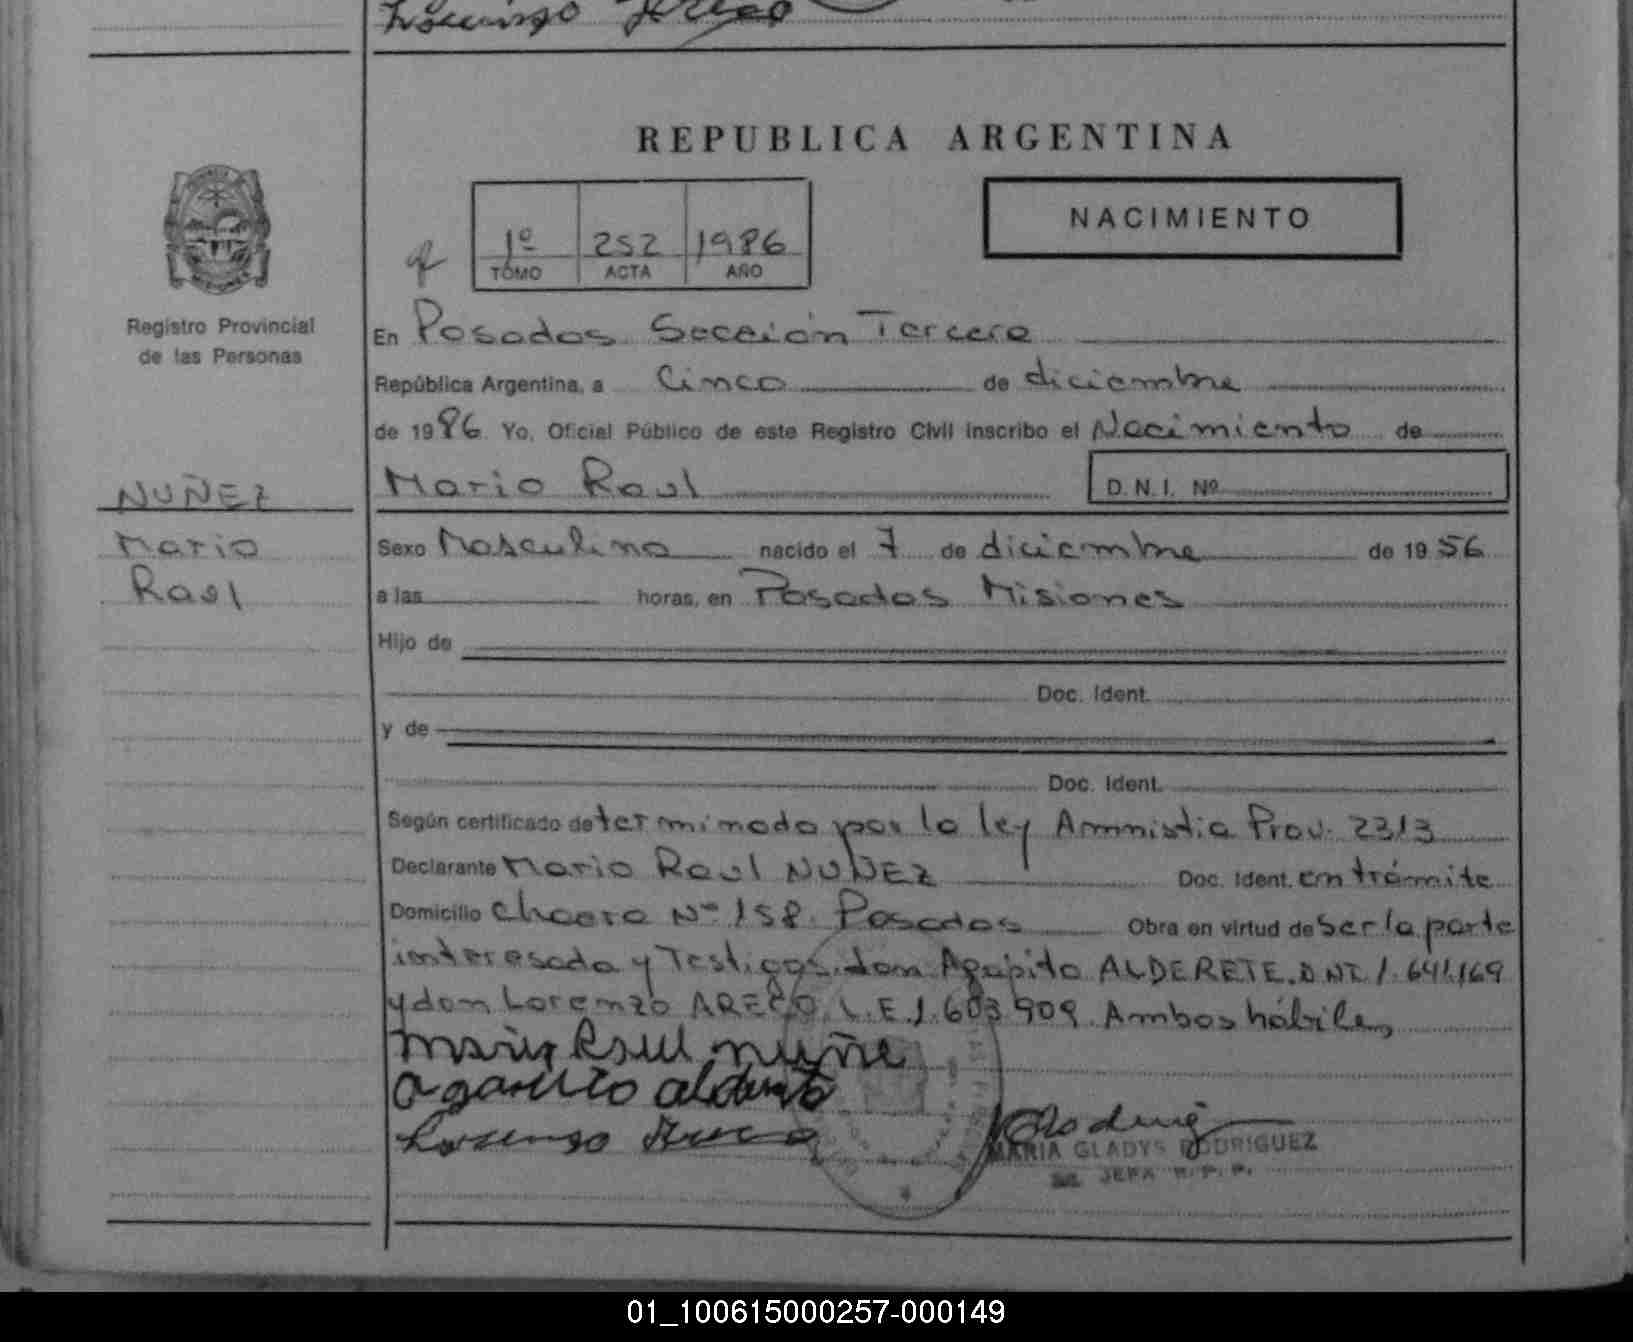 Lorenzo Areco
REPUBLICA ARGENTINA
NACIMIENTO
1º 252 1986
TOMO ACTA AÑO
Registro Provincial
de las Personas
En Posadas Sección Tercera
República Argentina, a Cinco de diciembre
de 1986. Yo, Oficial Público de este Registro Civil inscribo el Nacimiento de
Mario Raul D. N. I. Nº
NUÑEZ
Mario
Raul
Sexo Masculino nacido el 7 de diciembre de 1956
a las horas, en Posadas Misiones
Hijo de
Doc. Ident.
y de
Doc. Ident.
Según certificado determinado por la ley Amnistia Prov. 2313
Declarante Mario Raul NUÑEZ Doc. Ident. en trámite
Domicilio Chacra Nº 158. Posadas Obra en virtud de Ser la parte
interesada y Testigos. don Agapito ALDERETE. DNI 1.641.169
y don Lorenzo ARECO. L.E. 1.603.909. Ambos hábiles
Mario Raul nuñe
agapito alderete
Lorenzo Areco
MARIA GLADYS RODRIGUEZ
JEFA R. P. P.
01_100615000257-000149